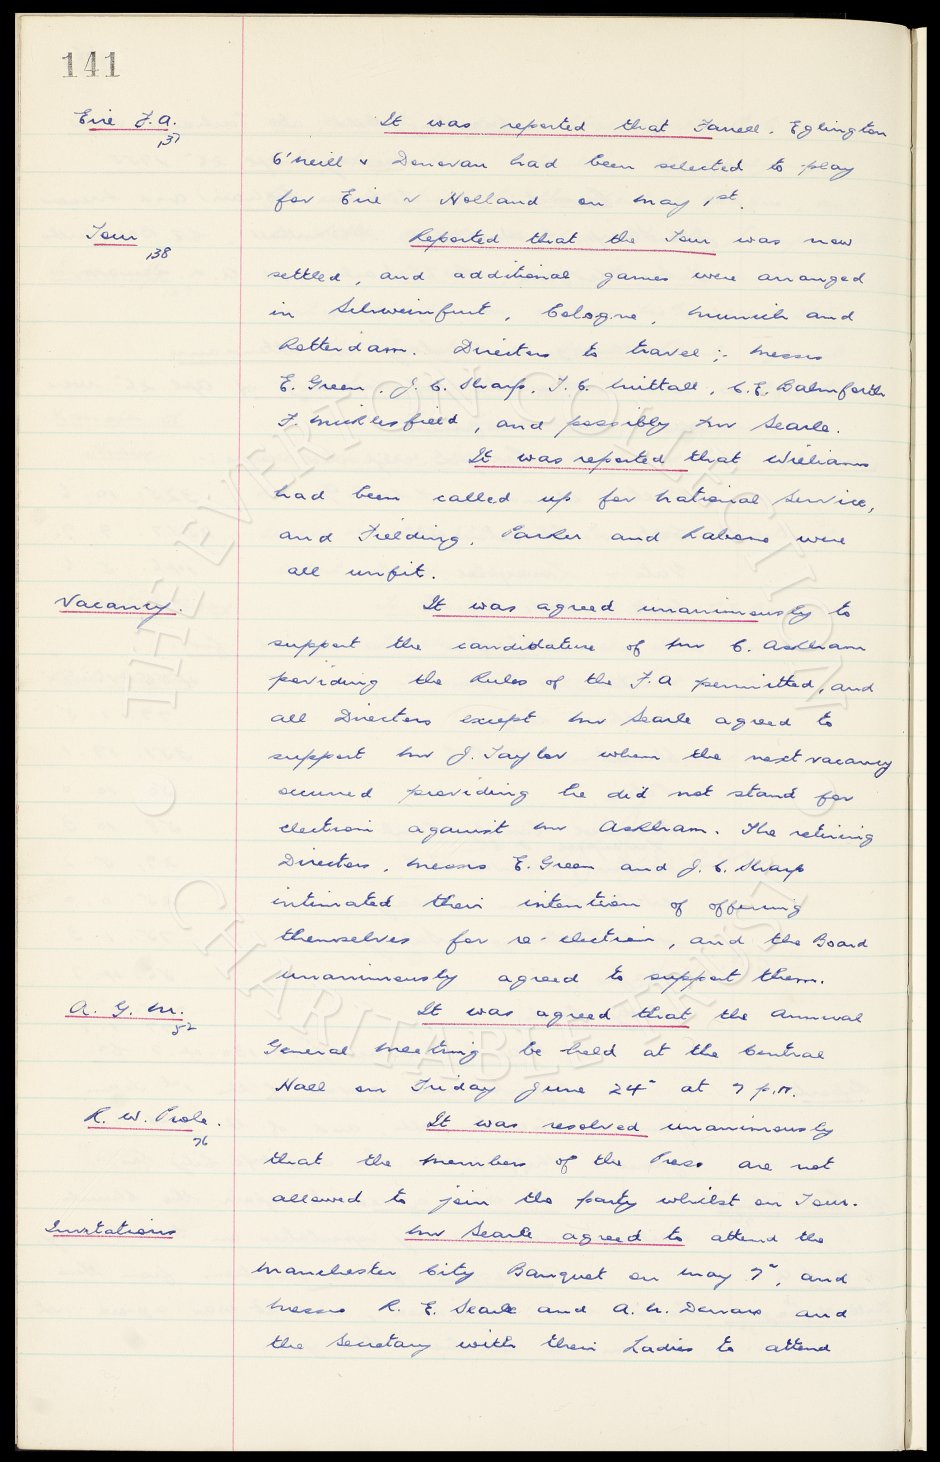 141
Eire F.A.
137
It was reported that Farrell, Eglington
O'Neill & Donovan had been selected to play
for Eire v Holland on May 1st.
Tour
138
Reported that the Tour was now
settled, and additional games were arranged
in Schweinfurt, Cologne, Munich and
Rotterdam. Directors to travel :- Messrs
E. Green, J. C. Sharp, T. C. Nuttall, C. E. Balmforth
F. Micklesfield, and possibly Mr Searle.
It was reported that Williams
had been called up for National Service,
and Fielding, Parker and Labone were
all unfit.
Vacancy.
It was agreed unanimously to
support the candidature of Mr C. Askham
providing the Rules of the F.A permitted, and
all Directors except Mr Searle agreed to
support Mr J. Taylor when the next vacancy
occurred providing he did not stand for
election against Mr Askham. The retiring
Directors, Messrs E. Green and J. C. Sharp
intimated their intention of offering
themselves for re-election, and the Board
unanimously agreed to support them.
A. G. M.
52
It was agreed that the Annual
General Meeting be held at the Central
Hall on Friday June 24" at 7 p.m.
R. W. Prole.
76
It was resolved unanimously
that the members of the Press are not
allowed to join the party whilst on Tour.
Invitations
Mr Searle agreed to attend the
Manchester City Banquet on May 7", and
Messrs R. E. Searle and A. N. Denaro and
the Secretary with their Ladies to attend
© THE EVERTON COLLECTION
CHARITABLE TRUST